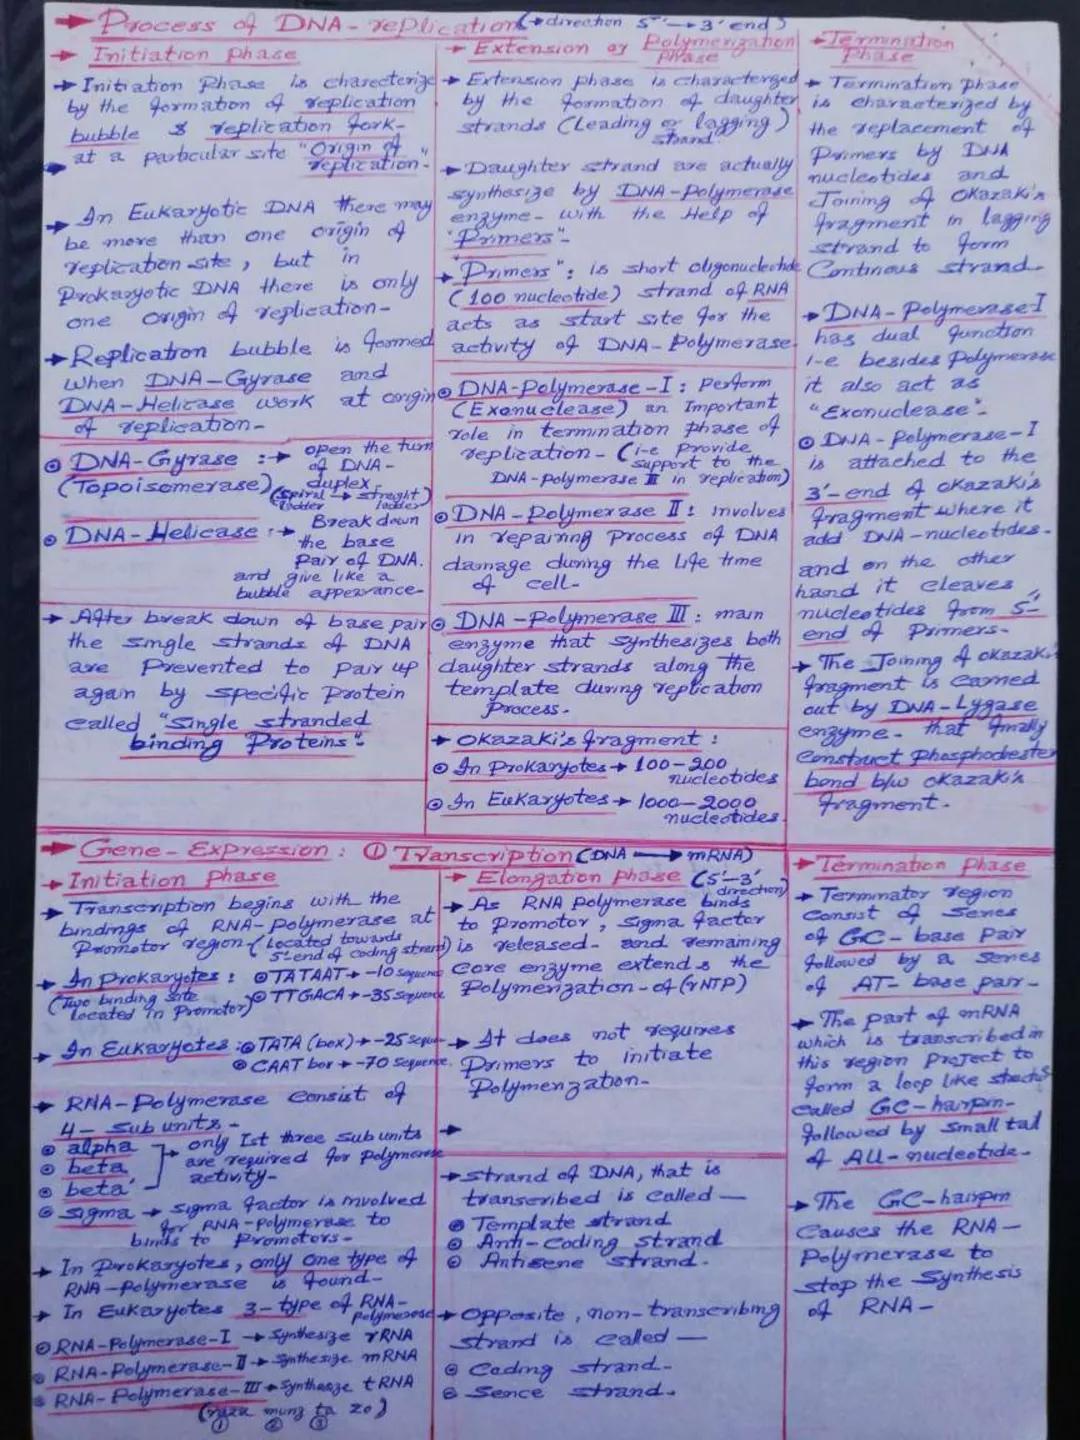 → Process of DNA-replication (→ direction 5'→3' end)
→ Initiation phase
→ Initiation Phase is charecterize
by the formation of replication
bubble & replication fork-
at a particular site "Origin of
replication"-
→ In Eukaryotic DNA there may
be more than one origin of
replication site, but in
Prokaryotic DNA there is only
one origin of replication-
→ Replication bubble is formed
when DNA-Gyrase and
DNA-Helicase work at origin
of replication-
⊙ DNA-Gyrase :→ open the turn
(Topoisomerase) of DNA-
duplex.
(spiral → streight
ladder ladder)
⊙ DNA-Helicase :→ Break down
the base
pair of DNA.
and give like a
bubble appearance-
→ After break down of base pair
the single strands of DNA
are Prevented to pair up
again by specific protein
called "single stranded
binding Proteins"-
→ Extension or Polymerization
phase
→ Extension phase is characterized
by the formation of daughter
strands (Leading or lagging)
strand.
→ Daughter strand are actually
synthesize by DNA-Polymerase
enzyme- with the Help of
"Primers"-
→ "Primers": is short oligonucleotide
(100 nucleotide) strand of RNA
acts as start site for the
activity of DNA-Polymerase
⊙ DNA-Polymerase-I: Perform
(Exonuclease) an Important
role in termination phase of
replication- (i-e Provide
support to the
DNA-polymerase III in replication)
⊙ DNA-Polymerase II: involves
in repairing Process of DNA
damage during the Life time
of cell-
⊙ DNA-Polymerase III: main
enzyme that synthesizes both
daughter strands along the
template during replication
Process.
→ Okazaki's fragment:
⊙ In Prokaryotes → 100-200
nucleotides
⊙ In Eukaryotes → 1000-2000
nucleotides.
→ Termination
Phase
→ Termination Phase
is characterized by
the replacement of
Primers by DNA
nucleotides and
Joining of Okazaki's
fragment in lagging
strand to form
Continous strand-
→ DNA-Polymerase-I
has dual function
i-e besides Polymerase
it also act as
"Exonuclease"-
⊙ DNA-Polymerase-I
is attached to the
3'-end of okazaki's
fragment where it
add DNA-nucleotides-
and on the other
hand it cleaves
nucleotides from 5'-
end of Primers-
→ The Joining of okazaki's
fragment is carried
out by DNA-Lygase
enzyme- that finally
construct phosphodiester
bond b/w okazaki's
fragment.
→ Gene-Expression: ① Transcription (DNA → mRNA)
→ Initiation phase
→ Transcription begins with the
bindings of RNA-Polymerase at
Promotor region- (Located towards
5'end of coding strand)
→ In Prokaryotes: ⊙ TATAAT → -10 sequence
(Two binding site ⊙ TTGACA → -35 sequence
located in Promotor)
→ In Eukaryotes: ⊙ TATA (box) → -25 sequ
⊙ CAAT box → -70 sequence.
→ RNA-Polymerase consist of
4-sub units-
⊙ alpha → only Ist three subunits
⊙ beta are required for polymerase
⊙ beta' activity-
⊙ sigma → sigma factor is involved
for RNA-polymerase to
binds to Promotors-
→ In Prokaryotes, only one type of
RNA-Polymerase is found-
→ In Eukaryotes 3-type of RNA-
Polymerase
⊙ RNA-Polymerase-I → synthesize rRNA
⊙ RNA-Polymerase-II → synthesize mRNA
⊙ RNA-Polymerase-III → synthesize tRNA
(raza mung ta zo)
① ② ③
→ Elongation phase (5'-3'
direction)
→ As RNA polymerase binds
to Promotor, sigma factor
is released- and remaining
Core enzyme extends the
Polymerization-of (rNTP)
→ It does not requires
Primers to initiate
Polymerization-
→
→ strand of DNA, that is
transcribed is called —
⊙ Template strand
⊙ Anti-Coding strand
⊙ Antisene strand.
→ Opposite, non-transcribing
strand is called —
⊙ Coding strand-
⊙ Sence strand.
→ Termination phase
→ Terminator region
consist of Series
of GC-base pair
followed by a series
of AT-base pair-
→ The part of mRNA
which is transcribed in
this region project to
form a loop like
called GC-hairpin-
followed by small tail
of AU-nucleotide-
→ The GC-hairpin
Causes the RNA-
Polymerase to
stop the synthesis
of RNA-